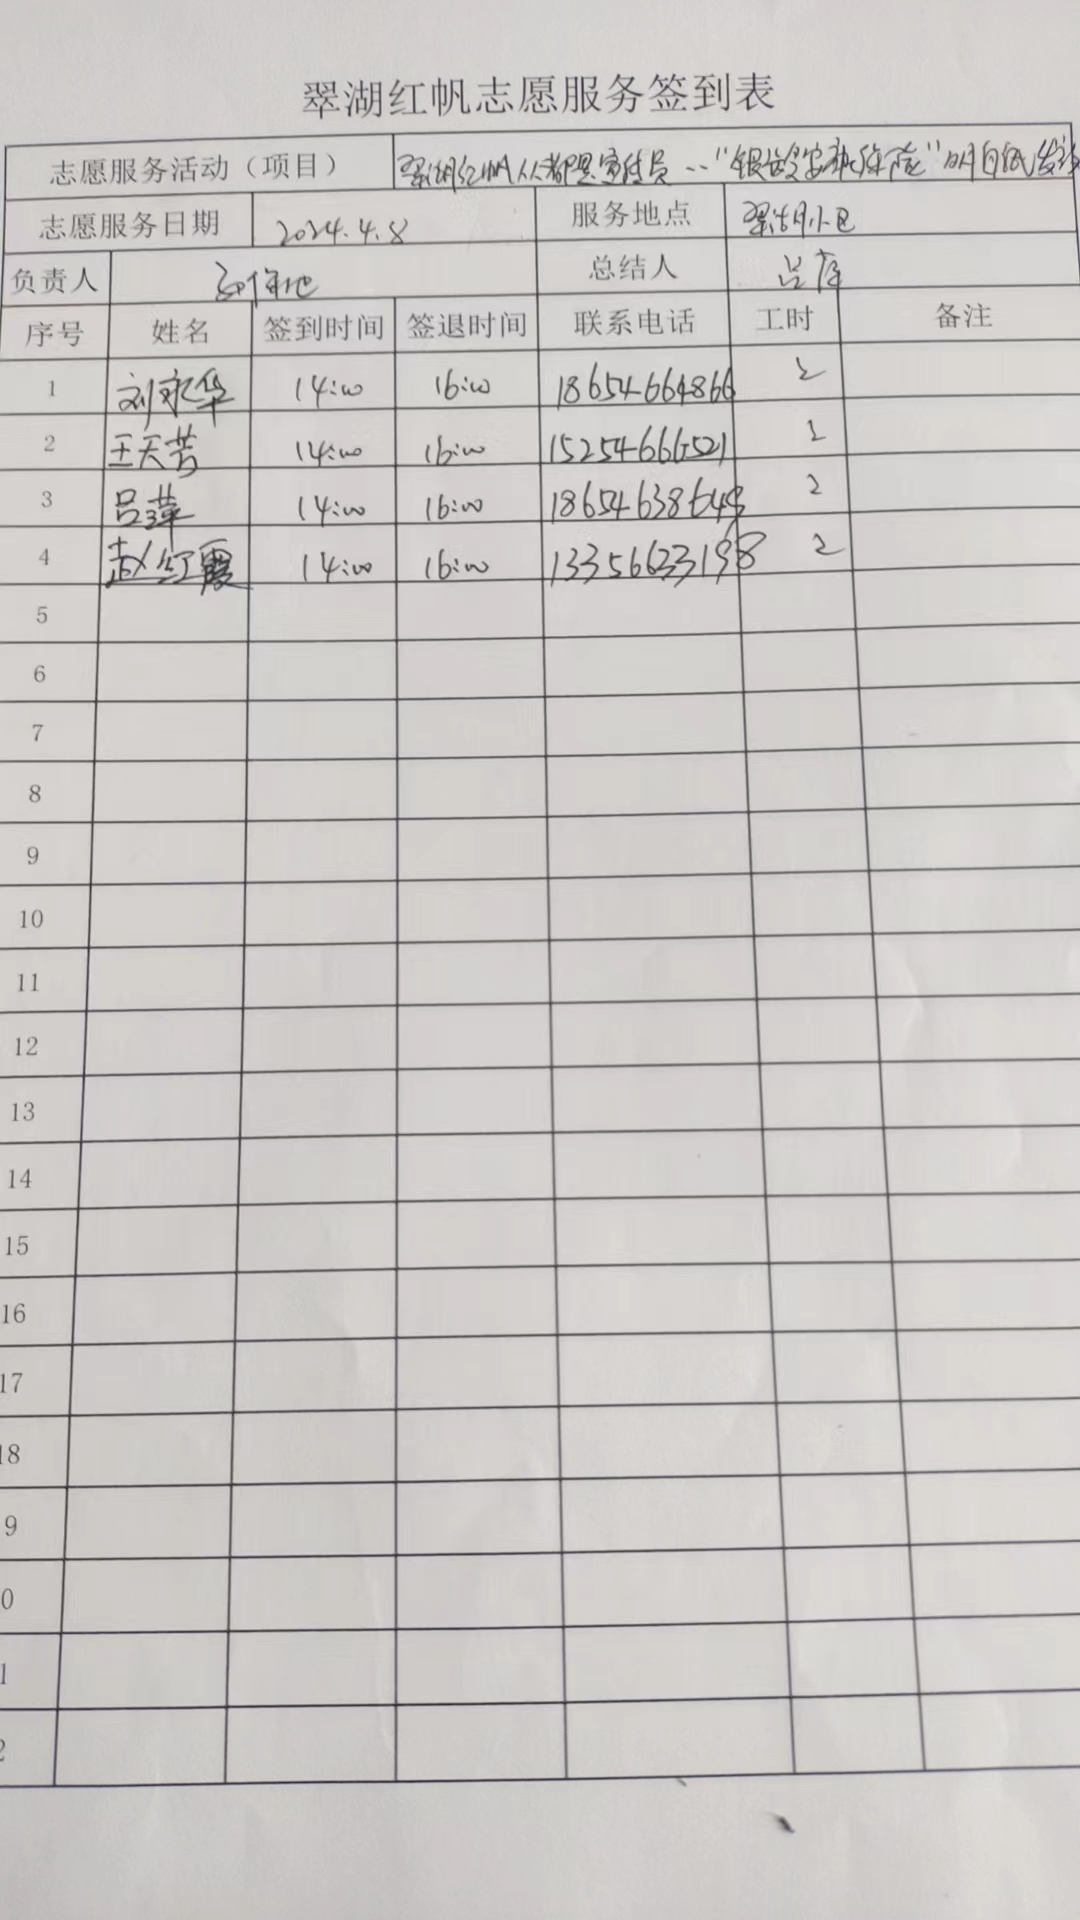 翠湖红帆志愿服务签到表
志愿服务活动（项目） 翠湖红帆人人都是宣传员--"银龄安康 " 明白纸发放
志愿服务日期 2024.4.8 服务地点 翠湖小区
负责人 总结人 吕
序号 姓名 签到时间 签退时间 联系电话 工时 备注
1 刘永华 14:00 16:00 18654664866 2
2 王天芳 14:00 16:00 15254666521 2
3 吕萍 14:00 16:00 1865463864 2
4 赵红霞 14:00 16:00 13356633198 2
5
6
7
8
9
10
11
12
13
14
15
16
17
18
9
0
1
2